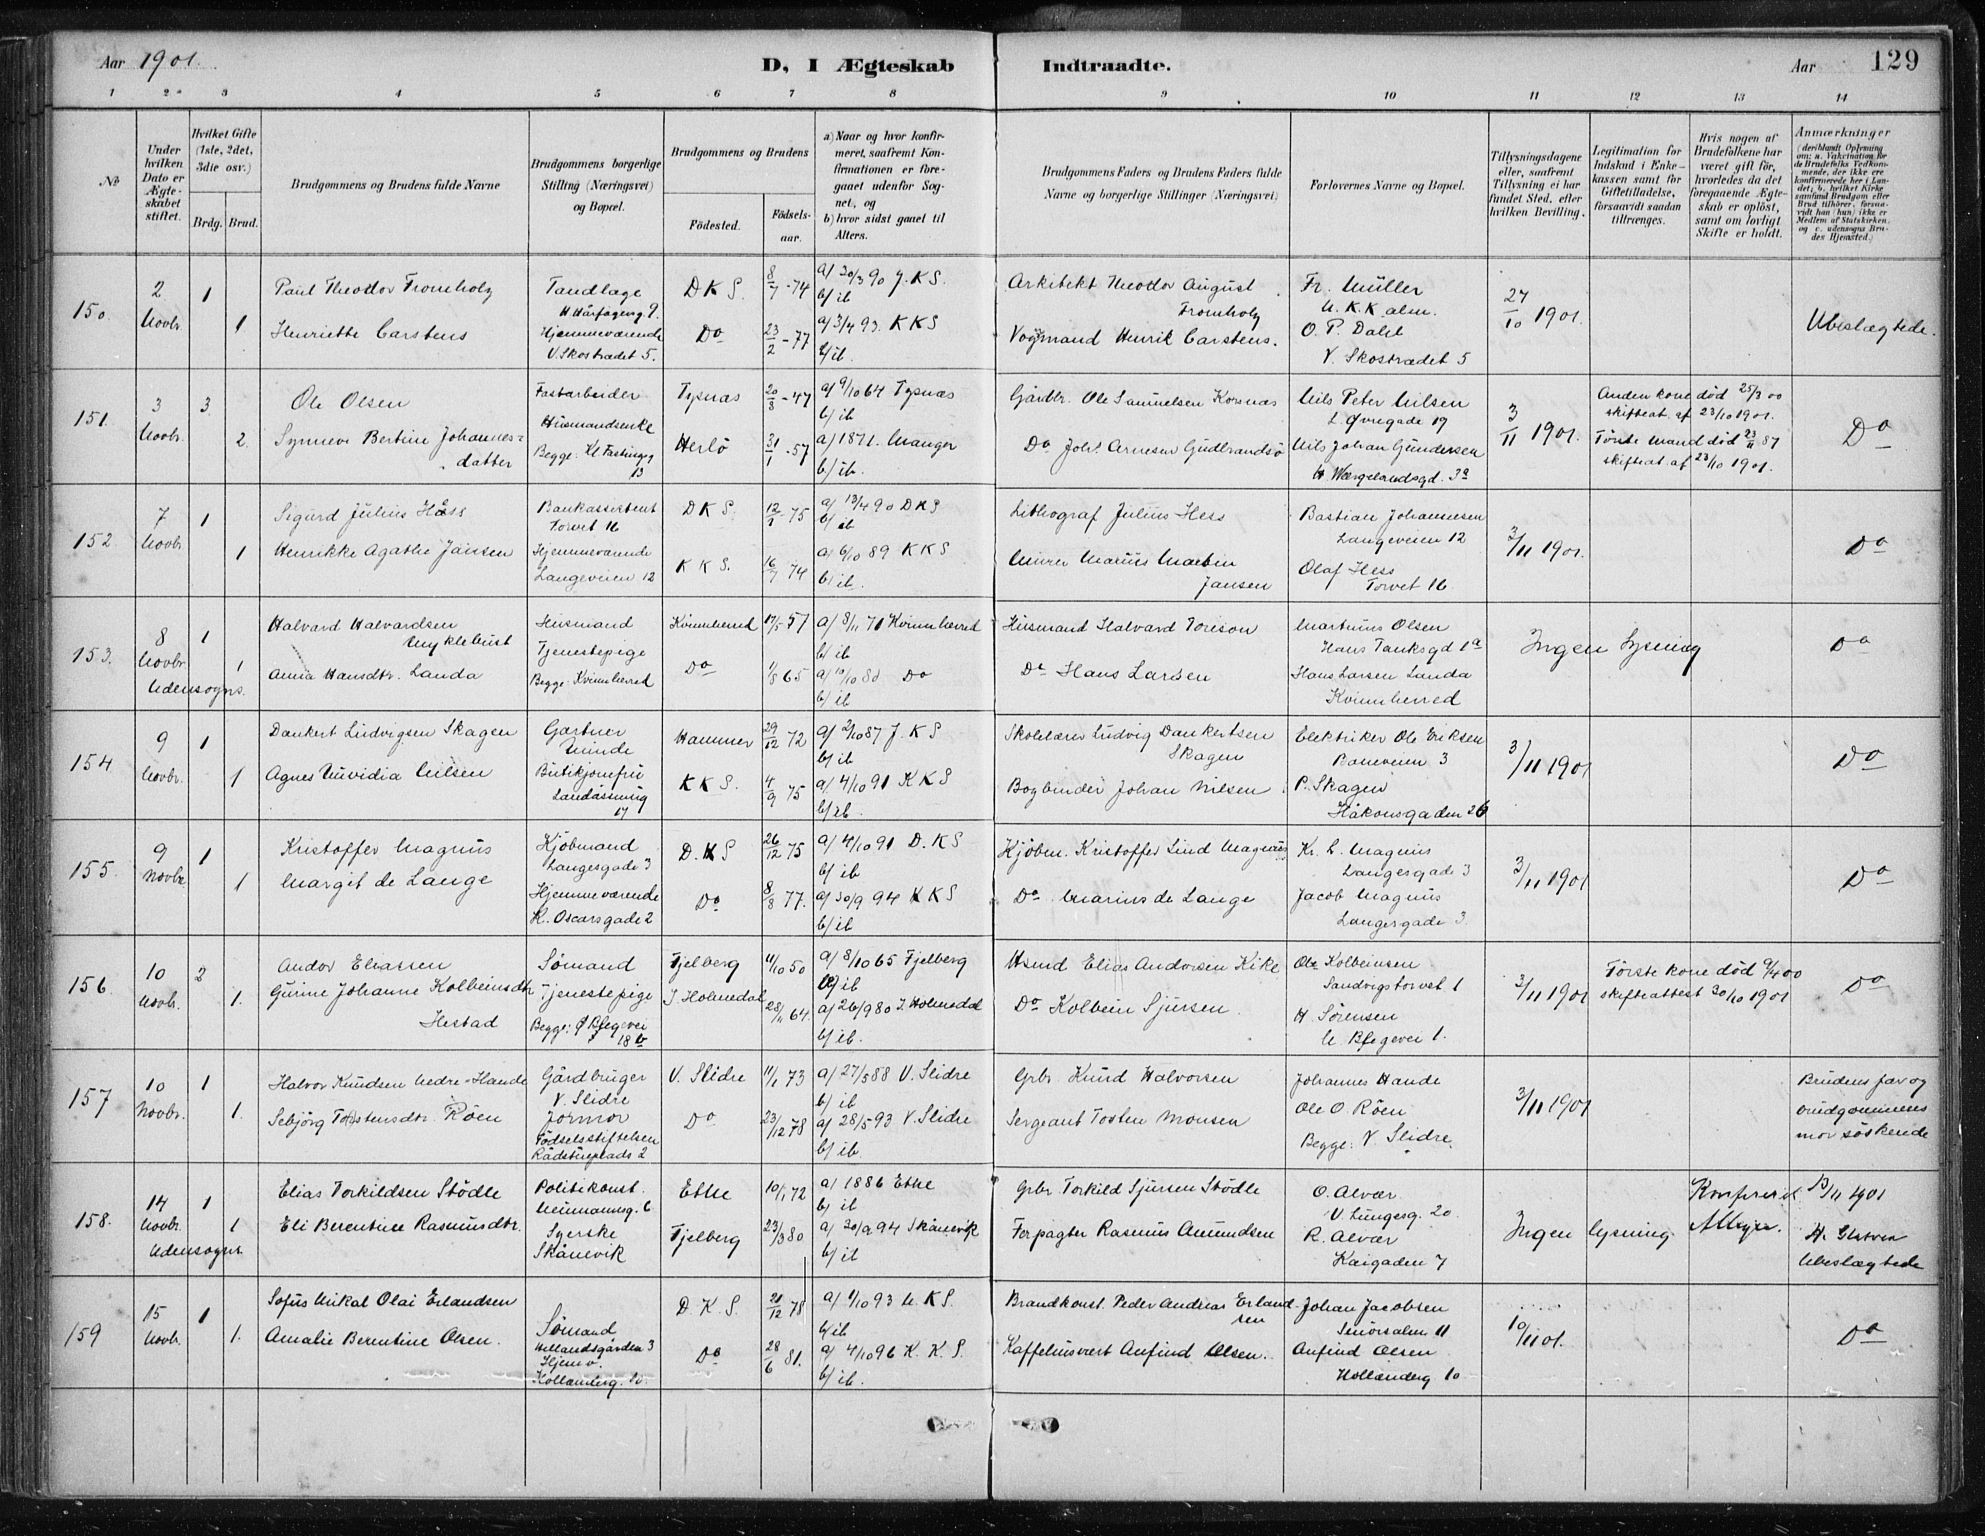 Aar 1901.
D, I Ægteskab Indtraadte.
Aar 129
1 2 3 4 5 6 7 8 9 10 11 12 13 14
№
Under hvilken Dato er Ægteskabet stiftet.
Hvilket Gifte (1ste, 2det, 3die osv.)
Brdg. Brud.
Brudgommens og Brudens fulde Navne
Brudgommens borgerlige Stilling (Næringsvei) og Bopæl.
Brudgommens og Brudens
Födested. Födselsaar.
a) Naar og hvor konfirmeret, saafremt Konfirmationen er foregaaet udenfor Sognet, og
b) hvor sidst gaaet til Alters.
Brudgommens Faders og Brudens Faders fulde Navne og borgerlige Stillinger (Næringsvei)
Forlovernes Navne og Bopæl.
Tillysningsdagene eller, saafremt Tillysning ei har fundet Sted, efter hvilken Bevilling.
Legitimation for Indskud i Enkekassen samt for Giftetilladelse, forsaavidt saadan tiltrænges.
Hvis nogen af Brudefolkene har været gift för, hvorledes da det foregaaende Ægteskab er oplöst, samt om lovligt Skifte er holdt.
Anmærkninger
150. 2 Novbr. 1 1
Paul Theodor Fromholz
Henriette Carstens
Tandlæge
H Hårfagersg. 9.
Hjemmeværende
V. Skostrædet 5.
D K S. 8/7 - 74
Do 23/2 - 77
a/ 30/3 90 J. K S.
b/ ib
a/ 3/4 93. K K S
b/ ib.
Arkitekt Theodor August Fromholz
Vognmand Henrik Carstens.
Fr. Müller
N. K. K. alm.
O. P. Dahl
V. Skostrædet 5
27/10 1901.
Ubeslægtede.
151. 3 Novbr. 3. 2.
Ole Olsen
Synneve Bertine Johannesdatter
Fastarbeider
Husmandsenke
Begge: Kl Fastingsg 13
Tysnæs 20/8 - 47
Herlö 31/1 - 57
a/ 9/10 64 Tysnæs
b/ ib
a/ 1871. Manger
b/ ib.
Gårdbr. Ole Samuelsen Korsnæs
Do Joh. Arnesen Gudbrandsö
Nils Peter Nilsen
L. Øvregade 19
Nils Johan Gundersen
H. Wærgelandsgd. 3a
3/11 1901.
Anden kone död 25/3 00
skifteat. af 23/10 1901.
Förste mand död 23/11 87
skifteat. af 23/10 1901.
Do
152 7 Novbr 1 1
Sigurd Julius Hess
Henrikke Agathe Jansen
Bankassistent
Torvet 16
Hjemmeværende
Langeveien 12
D K S. 12/1 - 75
K K S. 16/7 74
a/ 13/4 90 D K S
b/ ib
a/ 6/10 89 K K S
b/ ib.
Lithograf Julius Hess
Murer Marius Martin Jansen
Bastian Johannesen
Langeveien 12
Olaf Hess
Torvet 16
3/11 1901.
Do
153. 8 Novbr. 1 1
Udensogns.
Halvard Halvardsen Myklebust
Anna Hansdtr. Landa
Husmand
Tjenestepige
Begge: Kvinnherred
Kvinnherred 17/5 57
Do 1/8 65
a/ 8/11 71 Kvinnherred
b/ ib
a/ 10/10 80 Do
b/ ib
Husmand Halvard Toreson
Do Hans Larsen
Martinus Olsen
Hans Tanksgd 1a
Hans Larsen Landa
Kvinnherred
Ingen lysning
Do
154 9 Novbr. 1 1
Dankert Ludvigsen Skagen
Agnes Nuvidia Nilsen
Gartner
Minde
Butikjomfru
Landåssmug 17
Hammer 29/12 72
K K S. 4/9 75
a/ 2/10 87 J. K S
b/ ib
a/ 4/10 91 K K S
b/ ib.
Skolelærer Ludvig Dankertsen Skagen
Bogbinder Johan Nilsen
Elektriker Ole Eriksen
Baneveien 3
P. Skagen
Håkonsgaden 26
3/11 1901
Do
155. 9 Novbr. 1 1
Kristoffer Magnus
Margit de Lange
Kjöbmand
Langesgade 3
Hjemmeværende
K. Oscarsgade 2
D. K S 26/12 75
Do 8/8 77.
a/ 4/10 91 D. K S
b/ ib
a/ 30/9 94 K K S
b/ ib
Kjöbm. Kristoffer Lind Magnus
Do Marius de Lange
Kr. L. Magnus
Langesgade 3
Jacob Magnus
Langesgade 3.
3/11 1901
Do
156. 10 Novbr. 2 1.
Andor Eliassen
Gurine Johanne Kolbeinsdtr Hestad
Sömand
Tjenestepige
Begge: Ø Blegevei 18 b
Fjelberg 11/10 50
S. Holmedal 28/11 64.
a/ 8/10 65 Fjelberg
b/ ib
a/ 26/9 80 S. Holmedal
b/ ib.
Hsmd Elias Andorsen Kike
Do Kolbein Sjursen
Ole Kolbeinsen
Sandvigstorvet 1
H. Sörensen
N. Blegevei 1.
3/11 1901
Förste kone död 9/4 00
skifteattest 30/10 1901
Do
157 10 Novbr. 1 1.
Halvor Knudsen Nedre-Hande
Sebjörg Torstensdtr. Röen
Gårdbruger
V. Slidre
Jormor
Födselsstiftelsen
Rådstueplads 2
V. Slidre 11/1 73
Do 23/12 78
a/ 27/5 88 V. Slidre
b/ ib
a/ 28/5 93 V Slidre
b/ ib.
Grbr Knud Halvorsen
Sergeant Tosten Monsen
Johannes Hande
Ole O. Röen
Begge: V Slidre.
3/11 1901
Brudens far og brudgommens mor söskende
158. 14 Novbr. 1 1
Udensogns
Elias Torkildsen Stödle
Eli Berentine Rasmusdtr.
Politikonst.
Neumannsg. 6
Syerske
Skånevik
Etne 10/1 72
Fjelberg 23/3 80
a/ 1886 Etne
b/ ib
a/ 30/9 94 Skånevik
b/ ib
Grbr. Torkild Sjursen Stödle
Forpagter Rasmus Amundsen
O. Alvær
V. Lungesg. 20
R. Alvær
Kaigaden 7
Ingen lysning
13/11 1901
Ubeslægtede
159 15 Novbr. 1 1.
Sofus Mikal Olai Erlandsen
Amalie Berentine Olsen.
Sömand
Hollandsgården 3
Hjemv.
Hollænderg. 10.
D. K. S. 20/12 78
Do 28/6 81.
a/ 1/10 93 N. K S.
b/ ib
a/ 4/10 96 K. K. S.
b/ ib.
Brandkonst. Peder Andreas Erlandsen
Kaffehusvært Anfind Olsen.
Johan Jacobsen
Smörsalm 11
Anfind Olsen
Hollænderg 10
10/11 01.
Do